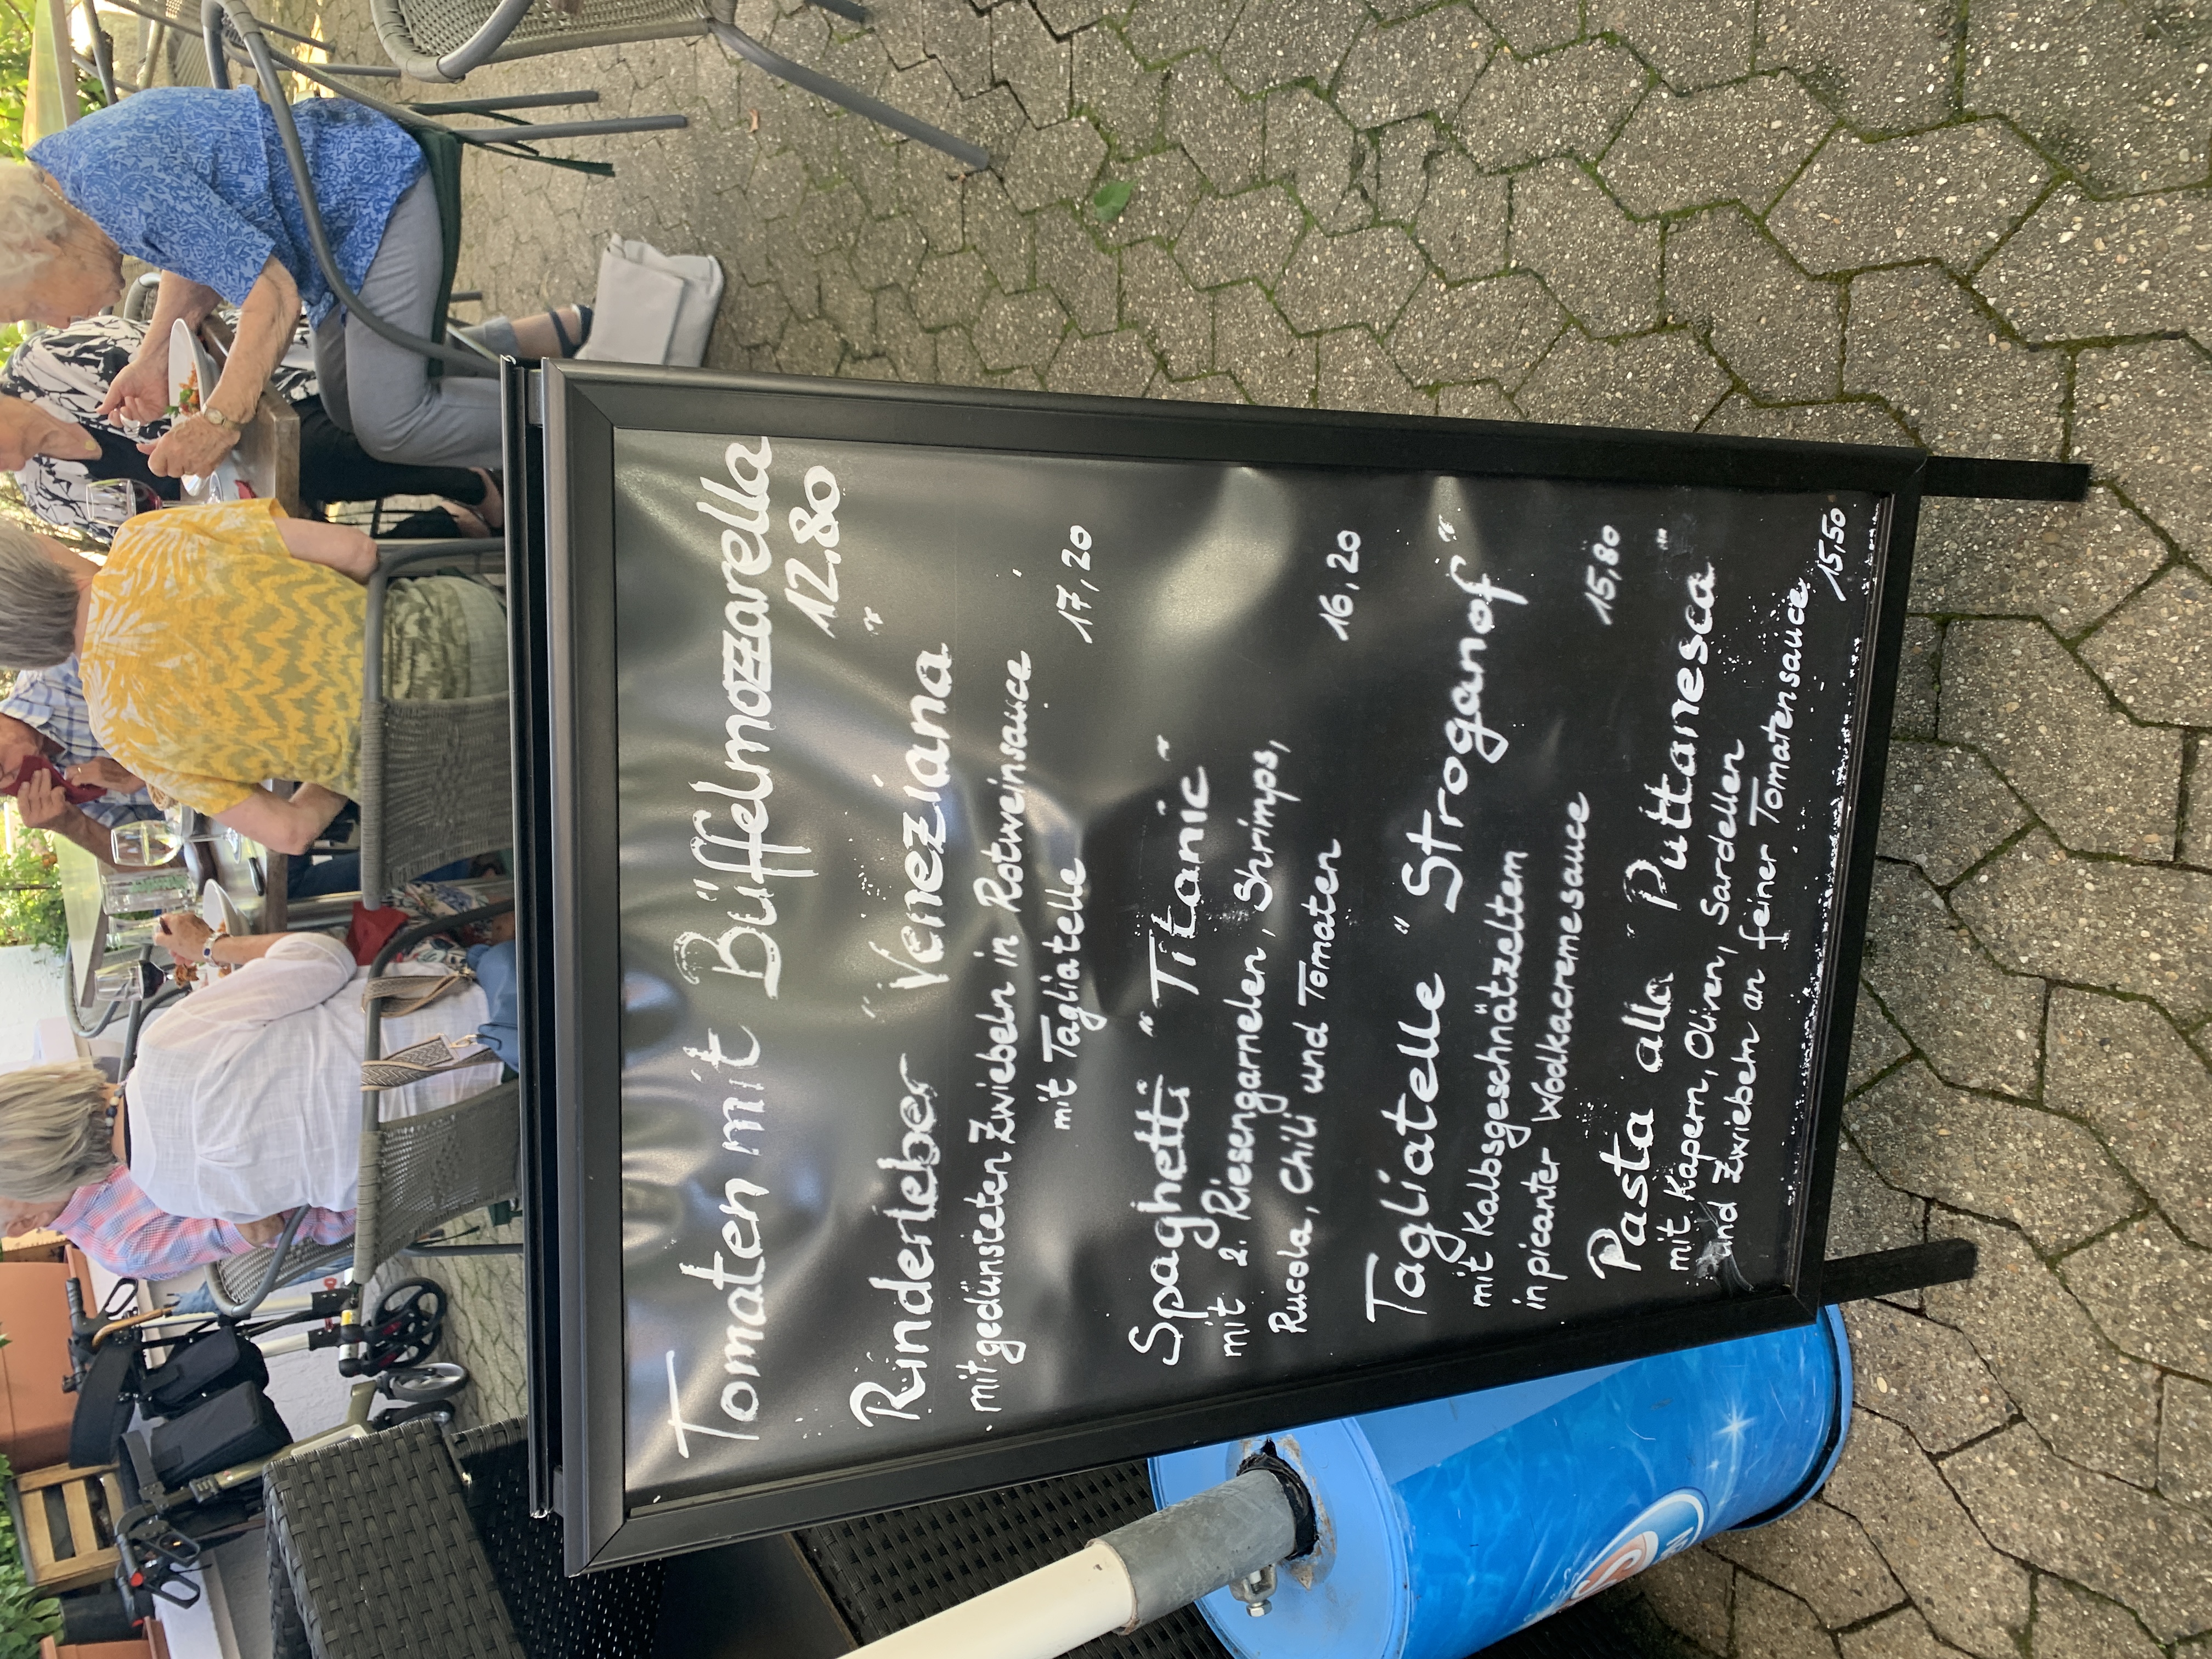 Tomaten mit Büffelmozzarella
12.80
Rinderleber "Veneziana"
mit gedünsteten Zwiebeln in Rotweinsauce
mit Tagliatelle
17,20
Spaghetti "Titanic"
mit 2. Riesengarnelen, Shrimps,
Rucola, Chili und Tomaten
16,20
Tagliatelle "Stroganof"
mit Kalbsgeschnätzeltem
in picanter Wodkacremesauce
15,80
Pasta alla "Puttanesca"
mit Kapern, Oliven, Sardellen
und Zwiebeln an feiner Tomatensauce
15,50